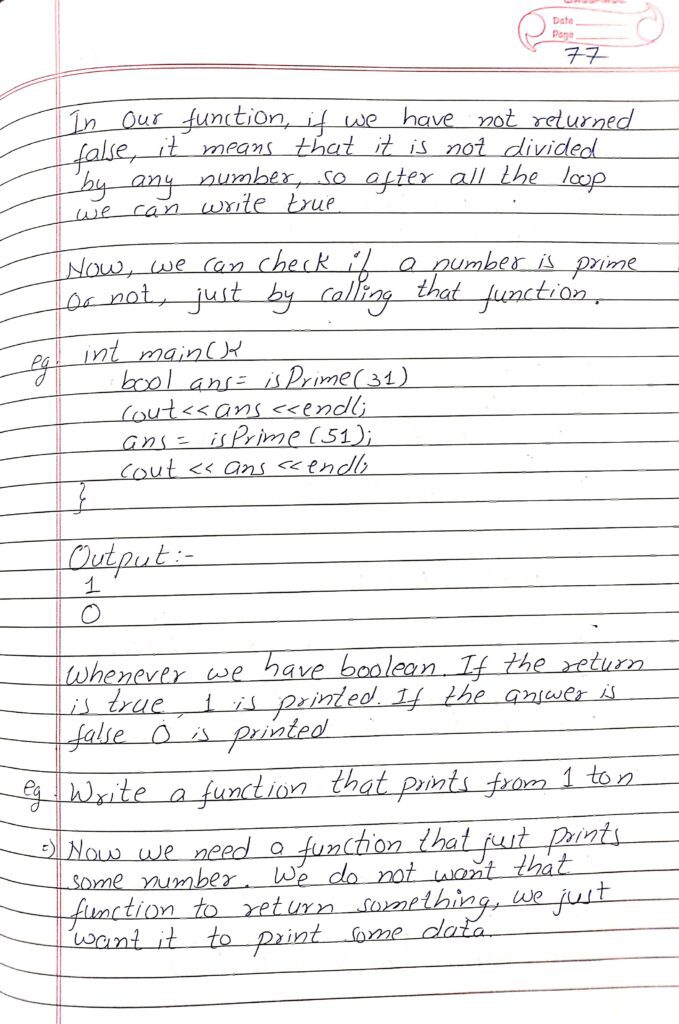 Date
Page
77
In Our function, if we have not returned
false, it means that it is not divided
by any number, so after all the loop
we can write true.
Now, we can check if a number is prime
Or not, just by calling that function.
eg. int main(){
bool ans= isPrime(31)
cout<<ans <<endl;
ans = isPrime (51);
cout << ans <<endl;
}
Output:-
1
0
Whenever we have boolean. If the return
is true, 1 is printed. If the answer is
false 0 is printed
eg. Write a function that prints from 1 to n
=) Now we need a function that just prints
some number. We do not want that
function to return something, we just
want it to print some data.